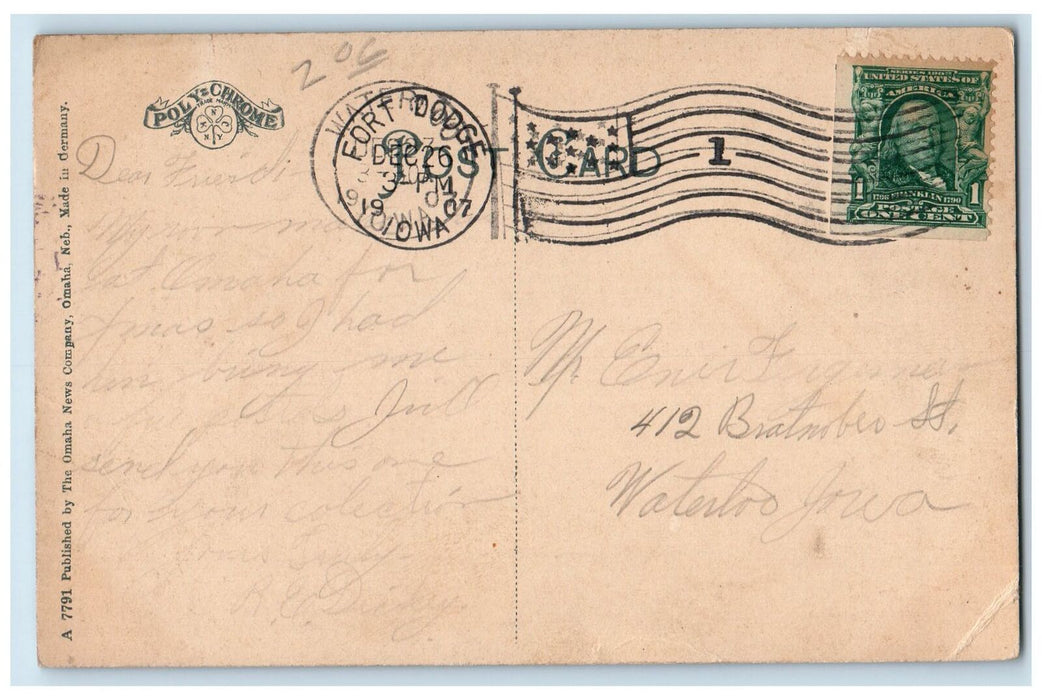 2 06
POLY-CHROME
TRADE MARK
N
N Y
POST CARD
WATERLOO
FORT DODGE
DEC 26
3 PM
1907
IOWA
1
SERIES 1902
UNITED STATES OF
AMERICA
1706 FRANKLIN 1790
1 POSTAGE 1
ONE CENT
A 7791 Published by The Omaha News Company, Omaha, Neb., Made in Germany.
Dear Friend
at Omaha for
Xmas so I had
him bring me
I will
send you this one
for your colection
Yours Truly
R. E. Dickey
Mr.
412 Bratnober St.
Waterloo Iowa